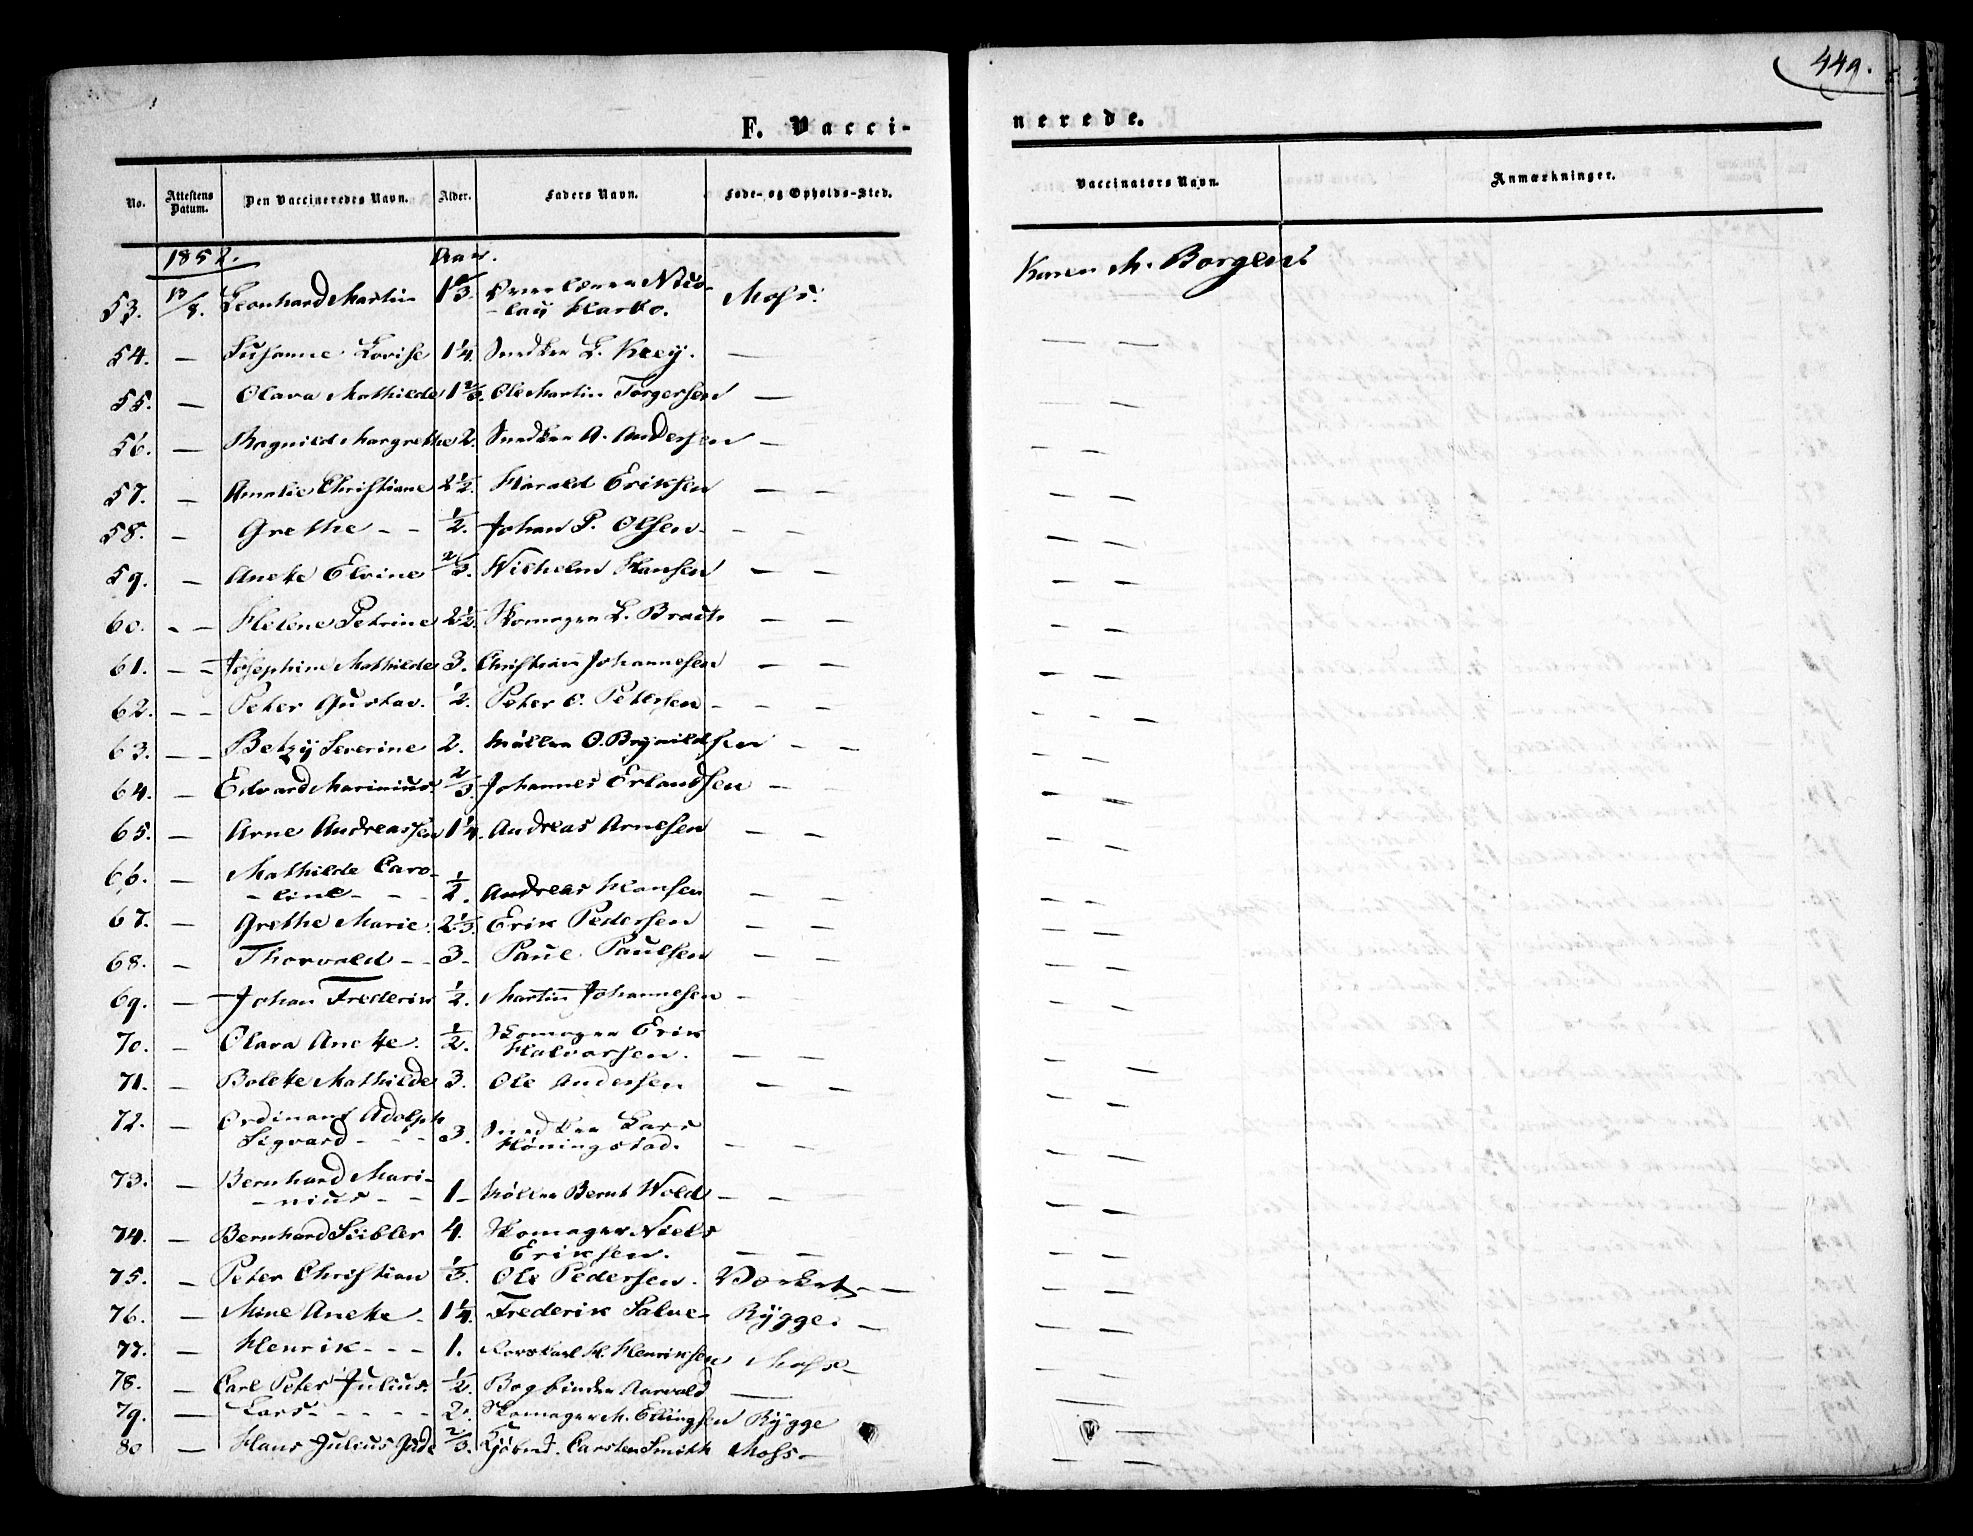 449.
F. Vacci-
nerede.
No. Attestens Datum. Den Vaccineredes Navn. Alder. Faders Navn. Føde- og Opholds-Sted. Vaccinators Navn. Anmærkninger.
1852. Aar.
53. 13/8. Leonhard Martin 1 1/3. Nico-
-lay Harbo. Moss. Karen M. Borgen
54. — Susanne Lovise 1 1/4. Snedker L. Krey. — — —
55. — Olava Mathilde 1 2/3. Ole Martin Torgersen — — —
56. — Ragnild Margrethe 2. Snedker A. Andersen — — —
57. — Amalie Christiane 2 1/2. Harald Eriksen — — — —
58. — Grethe - - 1/2. Johan P. Olsen - — — — —
59. — Anette Elvine 2/3. Wilhelm Hansen — — — —
60. - — Helene Petrine 2 1/2. Skomager L. Bradt. — — — —
61. — — Josephine Mathilde 3. Christian Johannesen — — — —
62. — — Peter Gustav. 1/2. Peter O. Pettersen - — — — —
63. — — Betzy Severine 2. Møller O. Brynildsen — — — —
64. — Edvard Marinius. 2/3. Johannes Erlandsen — — —
65. — Arne Andreassen 1 1/4. Andreas Arnesen — — — —
66. — Mathilde Caro-
-line - - - 1/2. Andreas Hansen — — — —
67. — Grethe Marie. 2 1/3. Erik Pedersen — — — —
68. — Thorvald - - 3. Paul Paulsen — — — —
69. — Johan Frederik 1/2. Martin Johannesen — — —
70. — Olava Anette. 1/2. Skomager Erik
Halvorsen. — — — —
71. — Bolette Mathilde 3. Ole Andersen — — — —
72. — Ordinant Adolph
Sigvard - - - 3. Snedker Lars
Höningstad. — — — —
73. — Bernhard Mari-
-nius - - 1 - Møller Bernt Wold — — — —
74. — Bernhard Siibler 4. Skomager Niels
Eriksen. — — — —
75. — Peter Christian 1/3. Ole Pedersen. Værket — — —
76. — Mine Anette. 1 1/4. Frederik Salve- Rygge. — — —
77. — Henrik - - - 1. H. Henriksen Moss — — —
78. — Carl Peter Julius. 1/2. Bogbinder Aarvold — — —
79. — Lars - - - - 2. Skomager M. Ellingsen Rygge — —
80 — Hans Julius Jude 2/3. Kjøbmd. Carsten Smith Moss — — —